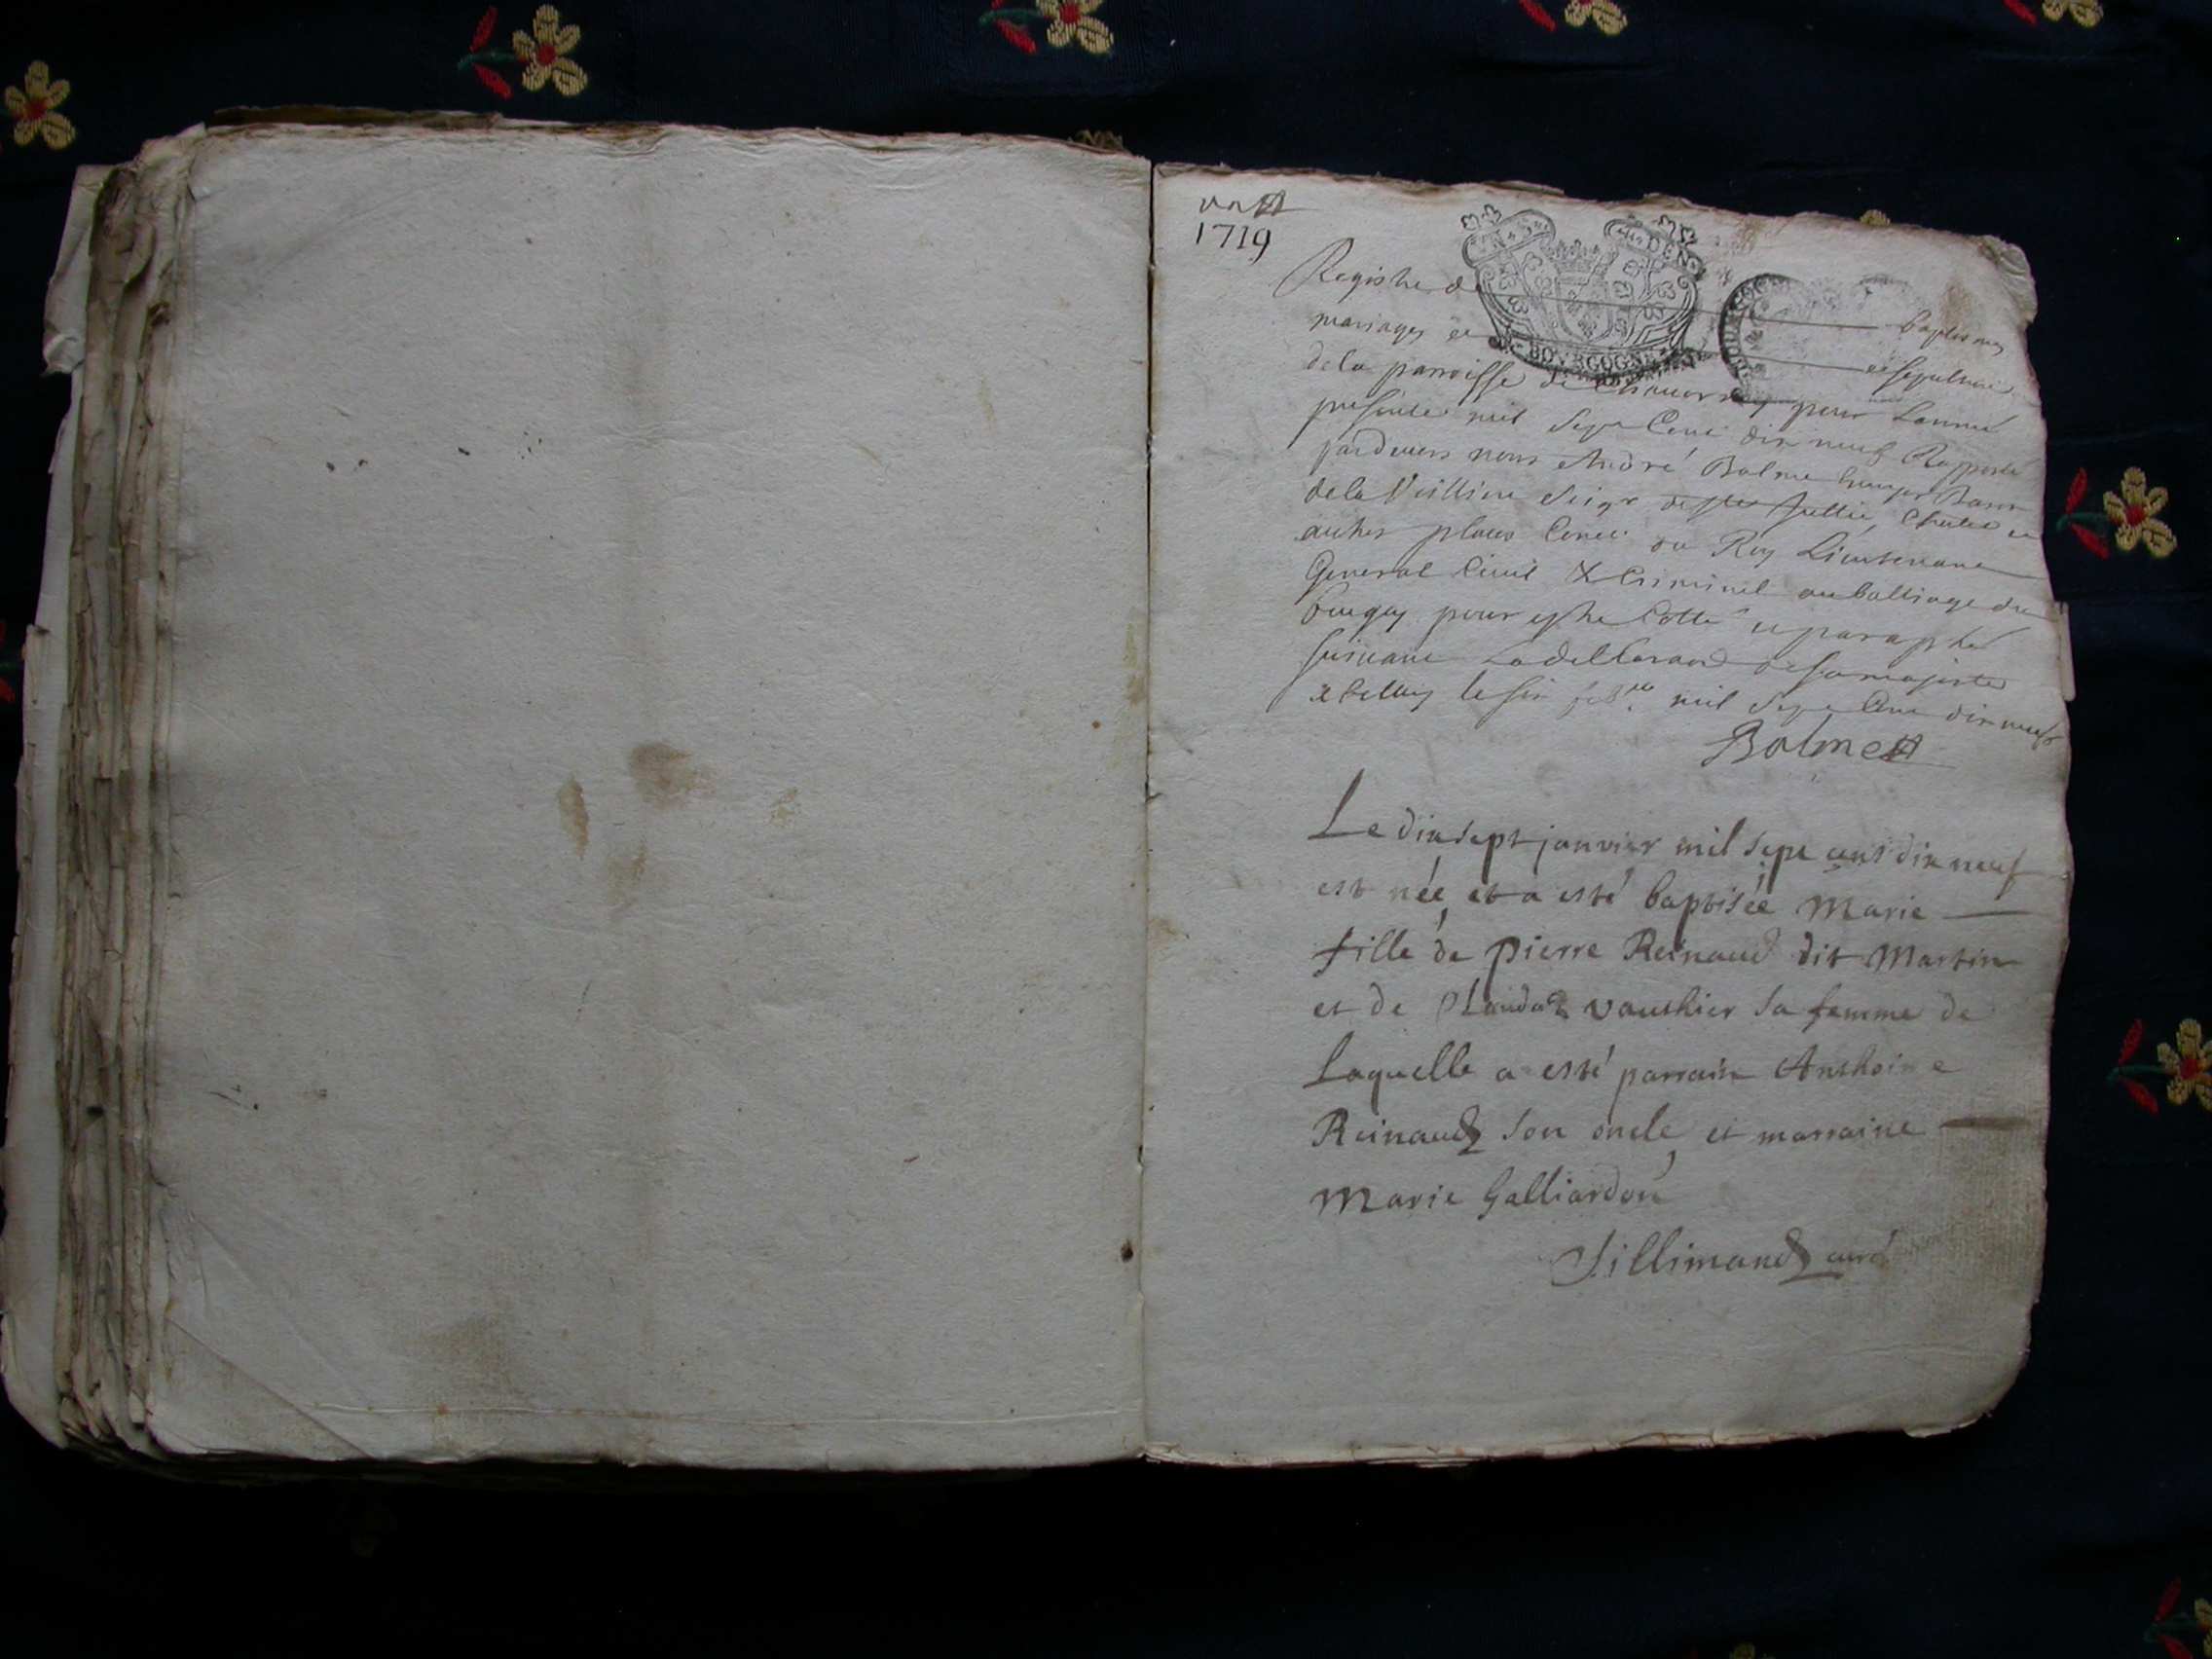 un
1719
N. S.
4. DEN
BOVRGOGNE
Registre de baptesmes
mariages et et sepulture
de la parroisse de pour Lannee
presente mil sept Cent dix neuf Rapporté
pardevers nous André Balme
de la Seigr et
autres places Conr du Roy Lieutenant
General Civil & Criminel au balliage du
bugey pour estre Cotté et paraphé
suivant La de sa majesté
a belley le six mil sept Cent dix neuf
Balme
Le dix sept janvier mil sept cent dix neuf
est née et a esté baptisée Marie
fille de pierre Reinaud dit Martin
et de vauthier sa femme de
Laquelle a esté parrain Anthoine
Reinaud son oncle et marraine
Marie Galliardon
Sillimand curé